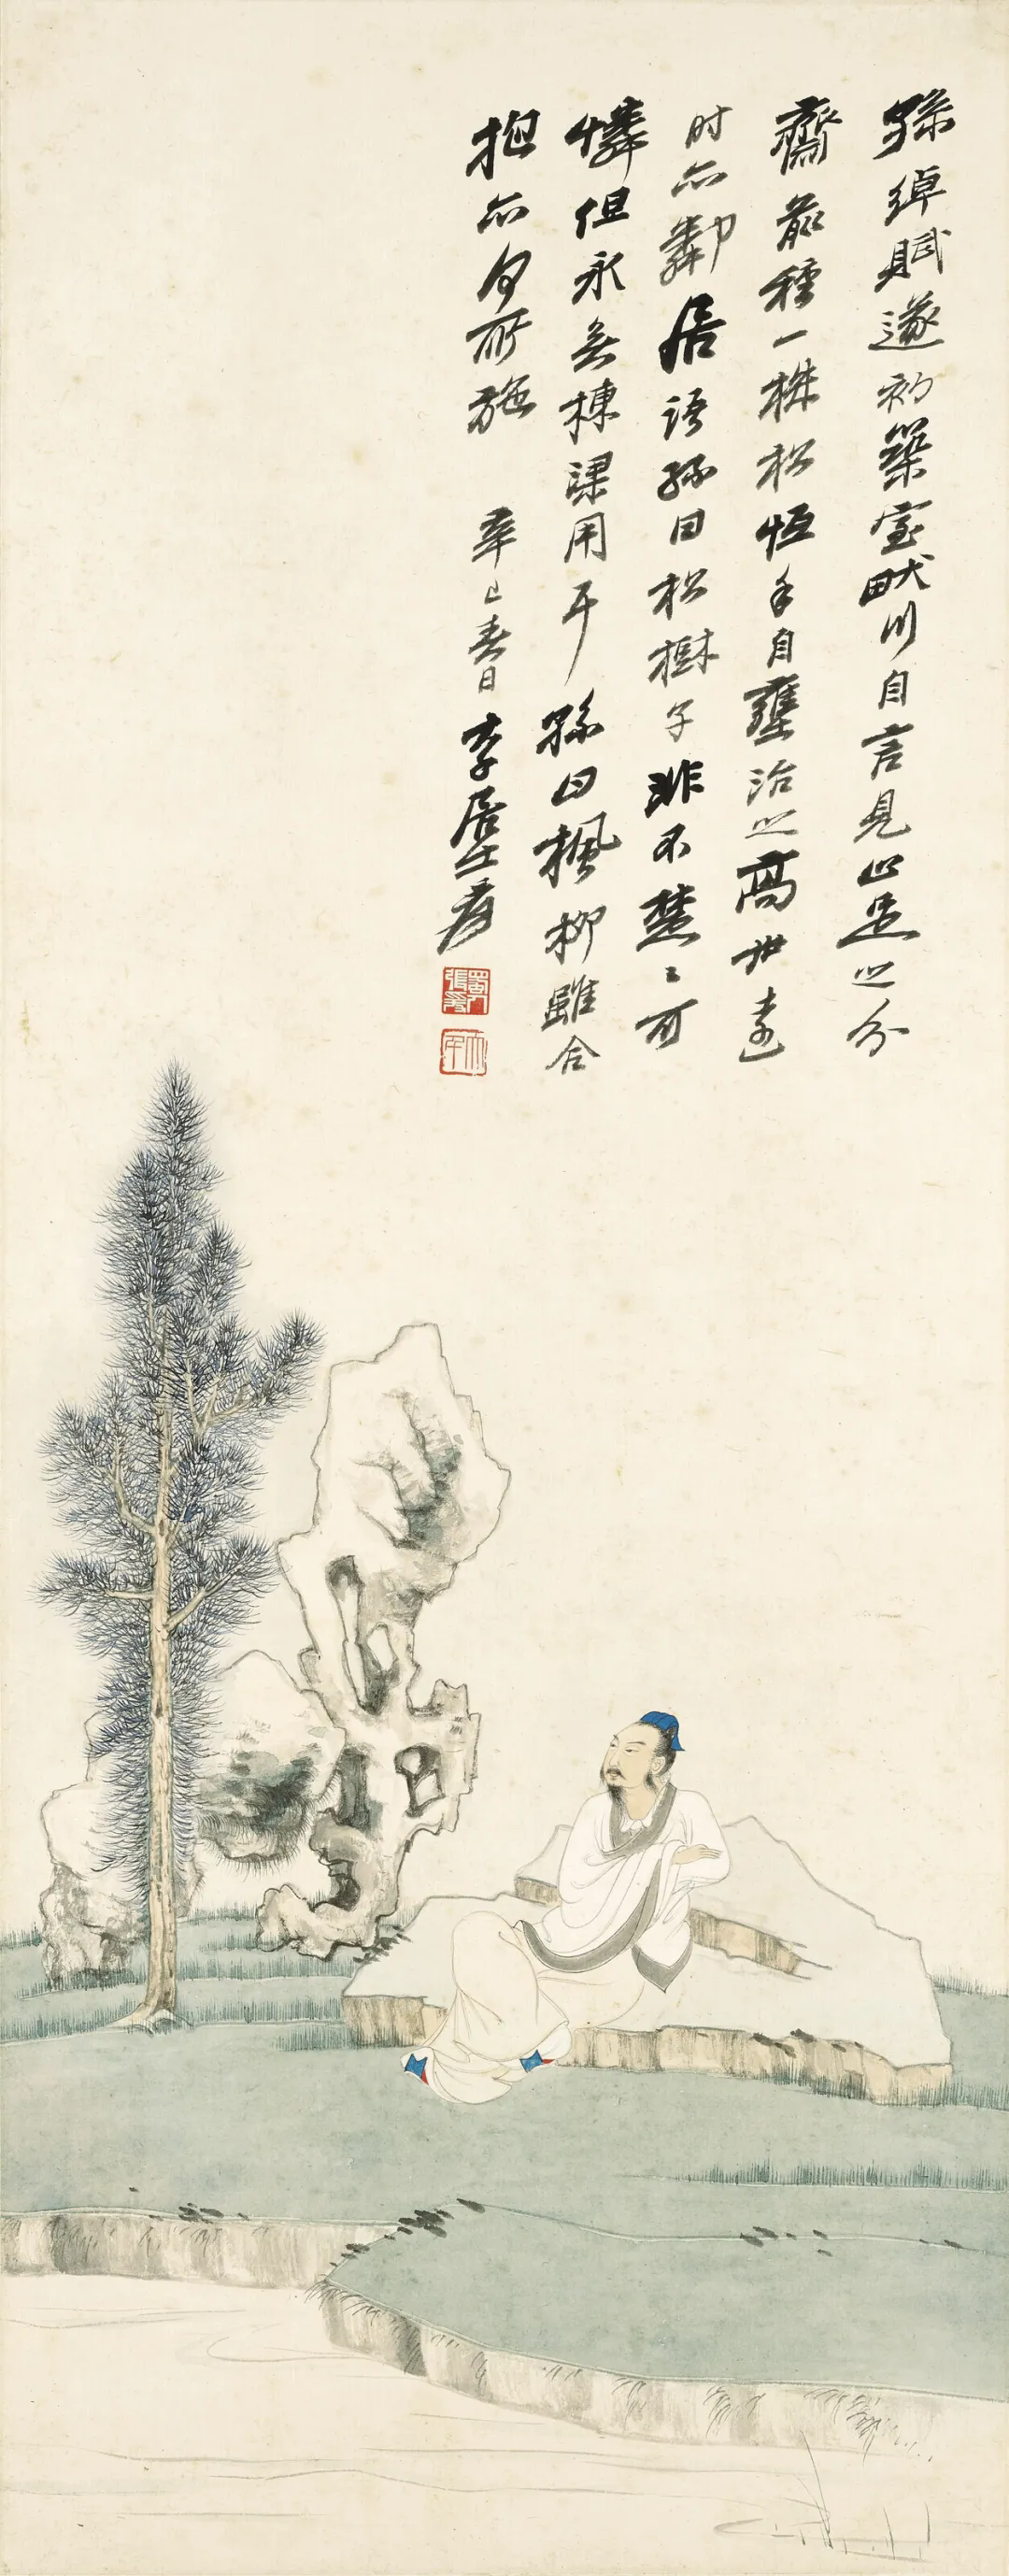 孫綽賦遂初築室畎川自言見止足之分
齋前種一株松恆手自壅治之高世遠
时亦鄰居語孫曰松樹子非不楚〻可
憐但永無棟梁用耳孫曰楓柳雖合
抱亦何所施 辛巳春日 大千居士爰
蜀人張爰
大千